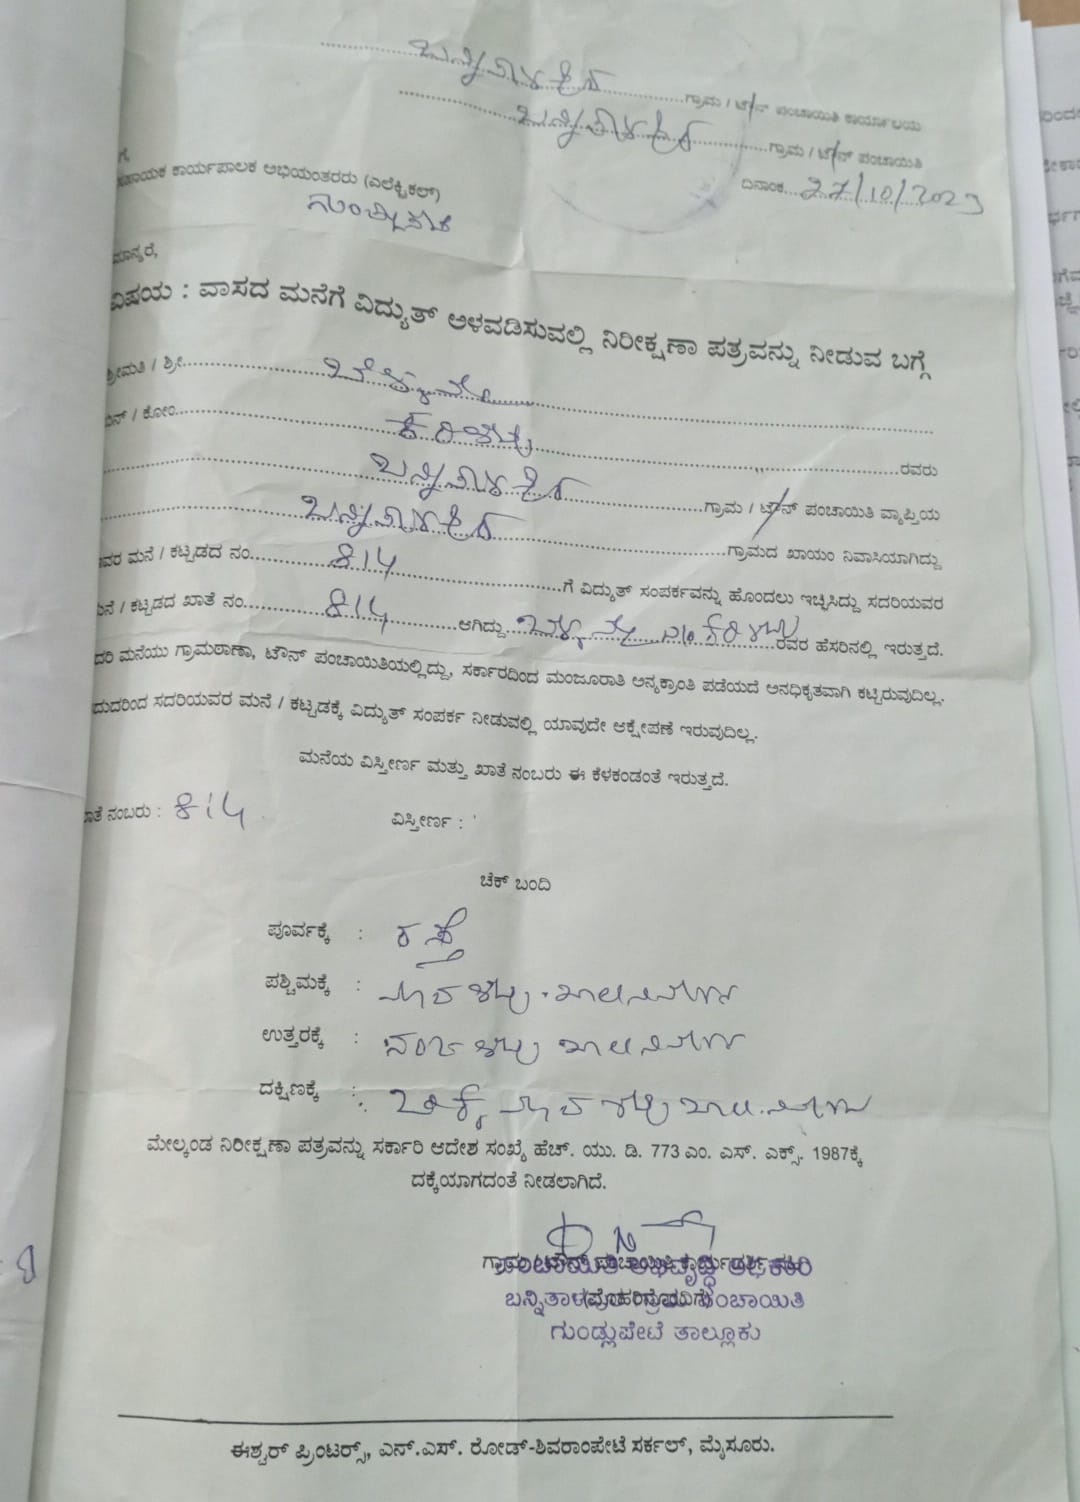 ಬನ್ನಿತಾಳಪುರ ಗ್ರಾಮ / ಟೌನ್ ಪಂಚಾಯಿತಿ ಕಾರ್ಯಾಲಯ
ಬನ್ನಿತಾಳಪುರ ಗ್ರಾಮ / ಟೌನ್ ಪಂಚಾಯಿತಿ
ದಿನಾಂಕ 27/10/2023
ಗೆ,
ಸಹಾಯಕ ಕಾರ್ಯಪಾಲಕ ಅಭಿಯಂತರರು (ಎಲೆಕ್ಟ್ರಿಕಲ್)
ಮಾನ್ಯರೆ,
ವಿಷಯ : ವಾಸದ ಮನೆಗೆ ವಿದ್ಯುತ್ ಅಳವಡಿಸುವಲ್ಲಿ ನಿರೀಕ್ಷಣಾ ಪತ್ರವನ್ನು ನೀಡುವ ಬಗ್ಗೆ
ಶ್ರೀಮತಿ / ಶ್ರೀ
ಬಿನ್ / ಕೋಂ ರವರು
ಬನ್ನಿತಾಳಪುರ ಗ್ರಾಮ / ಟೌನ್ ಪಂಚಾಯಿತಿ ವ್ಯಾಪ್ತಿಯ
ಬನ್ನಿತಾಳಪುರ ಗ್ರಾಮದ ಖಾಯಂ ನಿವಾಸಿಯಾಗಿದ್ದು
ವರ ಮನೆ / ಕಟ್ಟಡದ ನಂ 814 ಗೆ ವಿದ್ಯುತ್ ಸಂಪರ್ಕವನ್ನು ಹೊಂದಲು ಇಚ್ಛಿಸಿದ್ದು ಸದರಿಯವರ
ಮನೆ / ಕಟ್ಟಡದ ಖಾತೆ ನಂ 814 ಆಗಿದ್ದು ರವರ ಹೆಸರಿನಲ್ಲಿ ಇರುತ್ತದೆ.
ದರಿ ಮನೆಯು ಗ್ರಾಮಠಾಣಾ, ಟೌನ್ ಪಂಚಾಯಿತಿಯಲ್ಲಿದ್ದು, ಸರ್ಕಾರದಿಂದ ಮಂಜೂರಾತಿ ಅನ್ಯಕ್ರಾಂತಿ ಪಡೆಯದೆ ಅನಧಿಕೃತವಾಗಿ ಕಟ್ಟಿರುವುದಿಲ್ಲ.
ದುದರಿಂದ ಸದರಿಯವರ ಮನೆ / ಕಟ್ಟಡಕ್ಕೆ ವಿದ್ಯುತ್ ಸಂಪರ್ಕ ನೀಡುವಲ್ಲಿ ಯಾವುದೇ ಆಕ್ಷೇಪಣೆ ಇರುವುದಿಲ್ಲ.
ಮನೆಯ ವಿಸ್ತೀರ್ಣ ಮತ್ತು ಖಾತೆ ನಂಬರು ಈ ಕೆಳಕಂಡಂತೆ ಇರುತ್ತದೆ.
ಖಾತೆ ನಂಬರು : 814 ವಿಸ್ತೀರ್ಣ :
ಚೆಕ್ ಬಂದಿ
ಪೂರ್ವಕ್ಕೆ : ರಸ್ತೆ
ಪಶ್ಚಿಮಕ್ಕೆ :
ಉತ್ತರಕ್ಕೆ :
ದಕ್ಷಿಣಕ್ಕೆ :
ಮೇಲ್ಕಂಡ ನಿರೀಕ್ಷಣಾ ಪತ್ರವನ್ನು ಸರ್ಕಾರಿ ಆದೇಶ ಸಂಖ್ಯೆ ಹೆಚ್. ಯು. ಡಿ. 773 ಎಂ. ಎಸ್. ಎಕ್ಸ್. 1987ಕ್ಕೆ
ದಕ್ಕೆಯಾಗದಂತೆ ನೀಡಲಾಗಿದೆ.
ಪಂಚಾಯಿತಿ ಅಭಿವೃದ್ಧಿ ಅಧಿಕಾರಿ
ಬನ್ನಿತಾಳಪುರ ಗ್ರಾಮ ಪಂಚಾಯಿತಿ
ಗುಂಡ್ಲುಪೇಟೆ ತಾಲ್ಲೂಕು
ಈಶ್ವರ್ ಪ್ರಿಂಟರ್‍ಸ್, ಎನ್.ಎಸ್. ರೋಡ್-ಶಿವರಾಂಪೇಟೆ ಸರ್ಕಲ್, ಮೈಸೂರು.